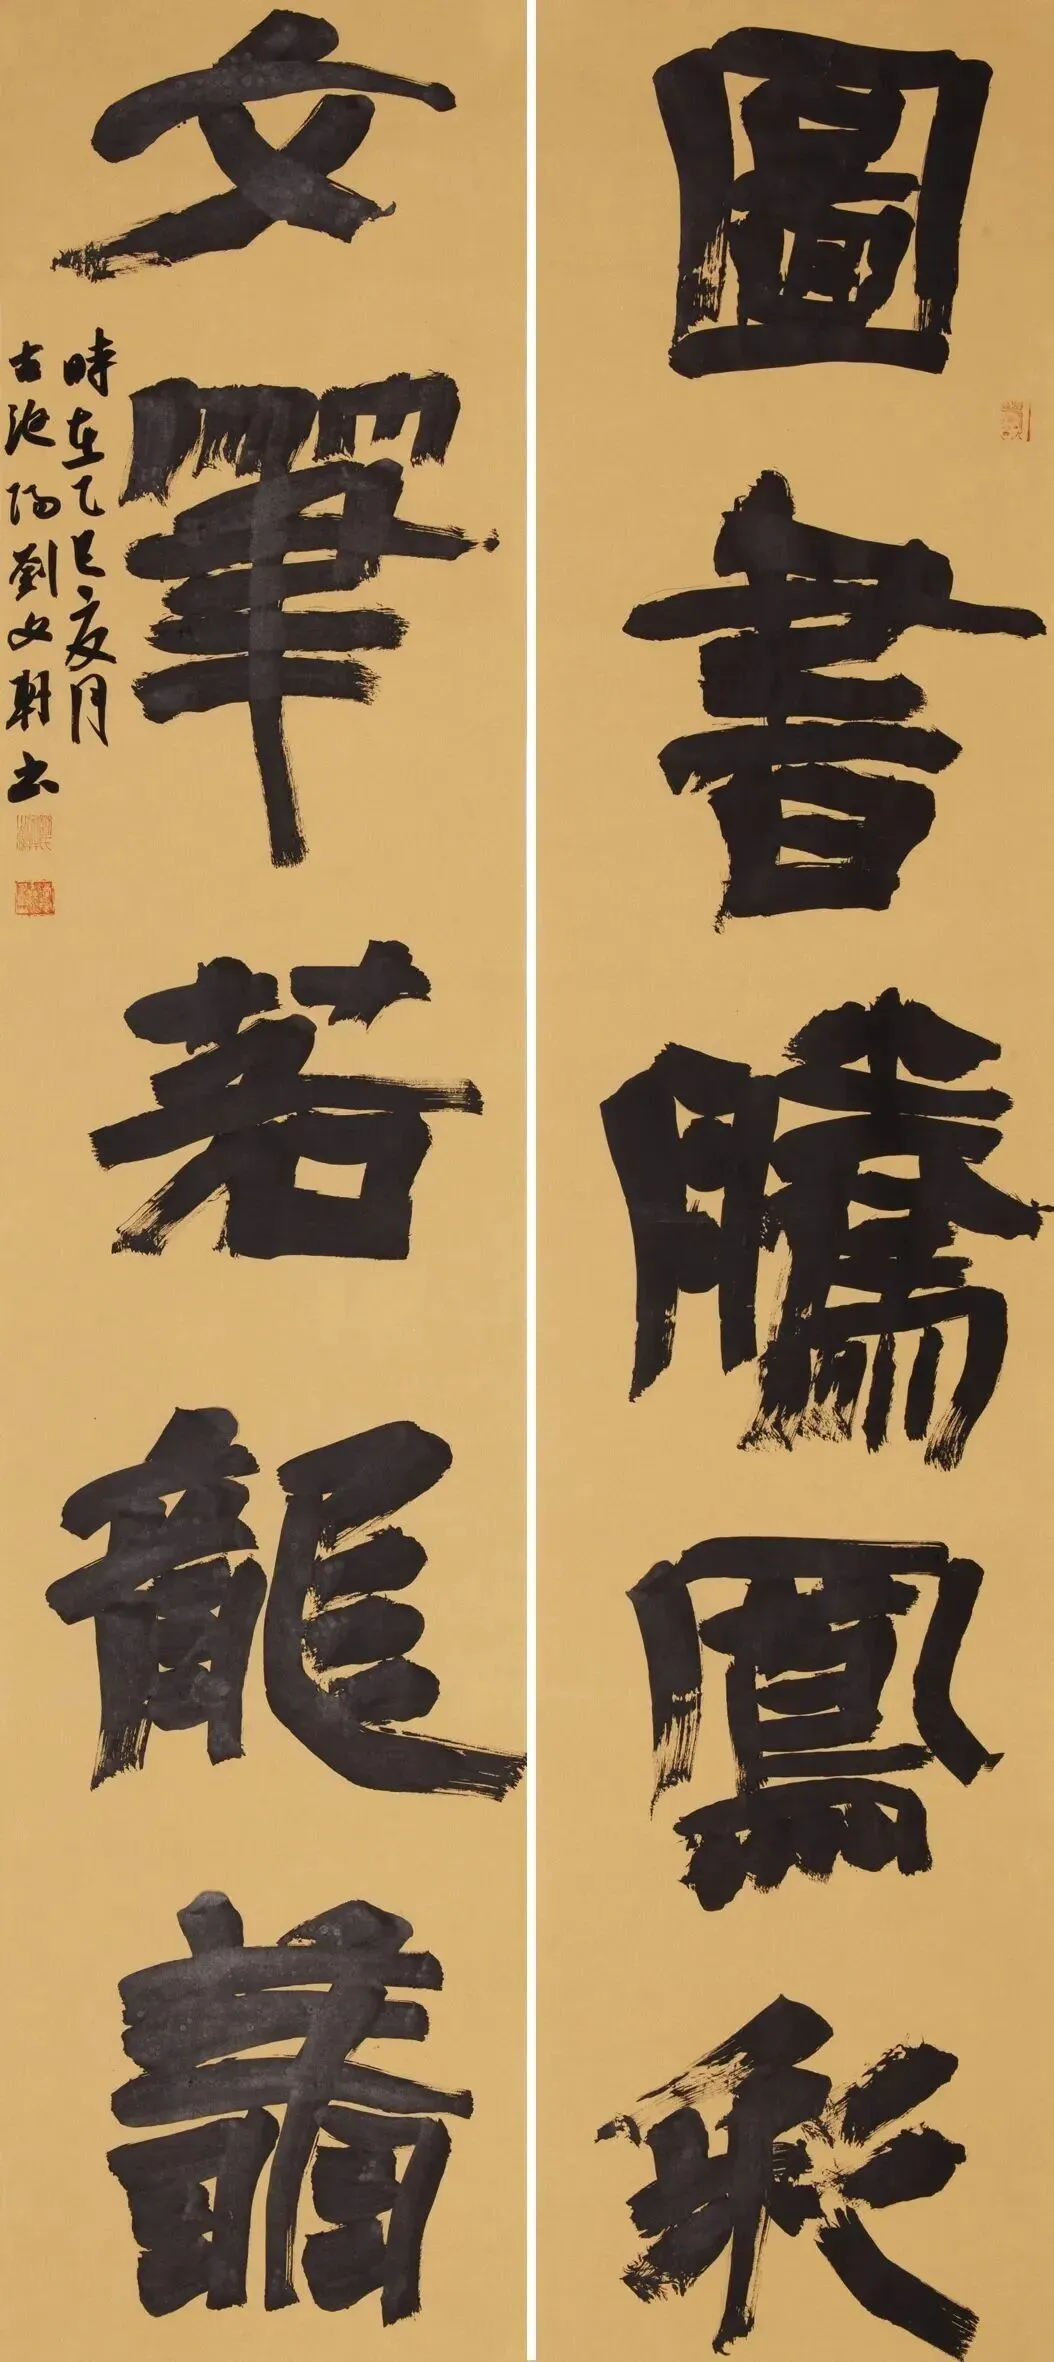 圖書騰鳳彩
文筆若龍翥
時在乙巳夏月
古池陽劉文書